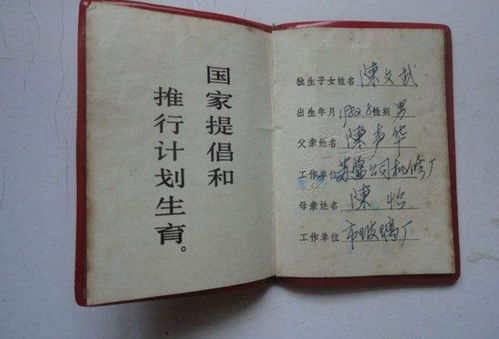 国家提倡和
推行计划生育。
独生子女姓名 陳文武
出生年月 1982.8 性别 男
父亲姓名 陳声华
工作单位 公司机修厂
母亲姓名 陳怡
工作单位 市玻璃厂